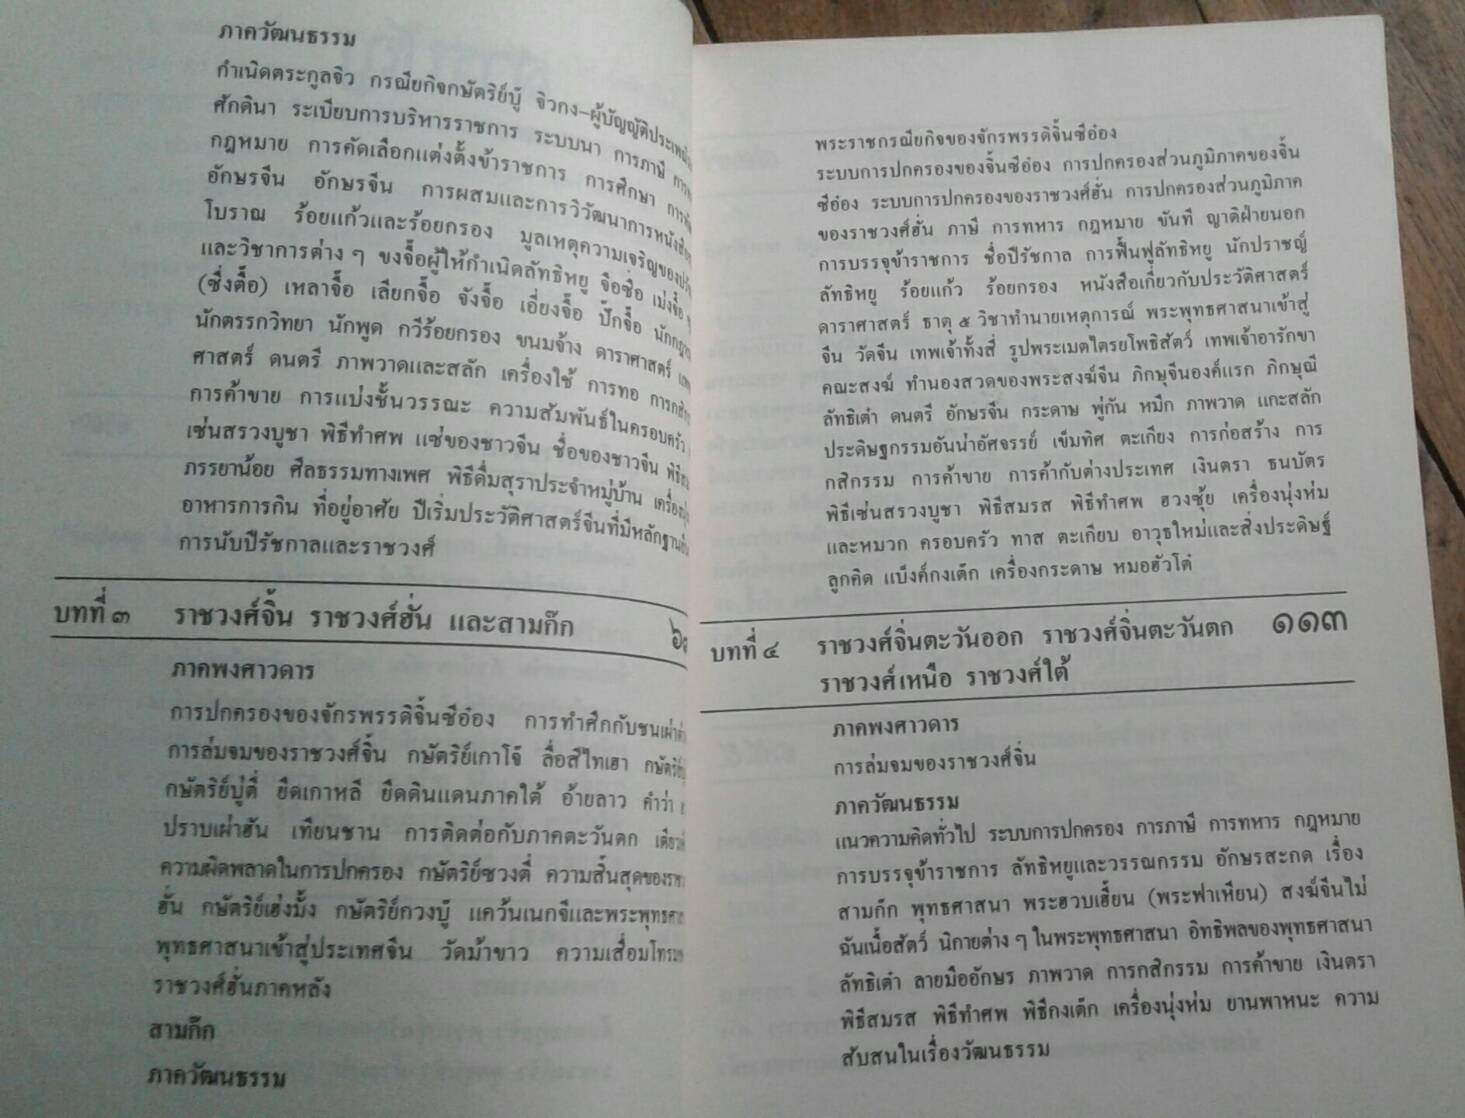 ภาควัฒนธรรม
กำเนิดตระกูลจิว กรณียกิจกษัตริย์บู๊ จิวกง–ผู้บัญญัติประเพณี
ศักดินา ระเบียบการบริหารราชการ ระบบนา การภาษี
กฎหมาย การคัดเลือกแต่งตั้งข้าราชการ การศึกษา
อักษรจีน อักษรจีน การผสมและการวิวัฒนาการหนังสือ
โบราณ ร้อยแก้วและร้อยกรอง มูลเหตุความเจริญของ
และวิชาการต่าง ๆ ขงจื๊อผู้ให้กำเนิดลัทธิหยู จือซือ เม่งจื๊อ
(ซึ่งตื๊อ) เหลาจื๊อ เลียกจื๊อ จังจื๊อ เอี่ยงจื๊อ บั๊กจื๊อ
นักตรรกวิทยา นักพูด กวีร้อยกรอง ขนมจ้าง ดาราศาสตร์
ศาสตร์ ดนตรี ภาพวาดและสลัก เครื่องใช้ การทอ การกสิกรรม
การค้าขาย การแบ่งชั้นวรรณะ ความสัมพันธ์ในครอบครัว
เซ่นสรวงบูชา พิธีทำศพ แซ่ของชาวจีน ชื่อของชาวจีน
ภรรยาน้อย ศีลธรรมทางเพศ พิธีดื่มสุราประจำหมู่บ้าน
อาหารการกิน ที่อยู่อาศัย ปีเริ่มประวัติศาสตร์จีนที่มีหลักฐาน
การนับปีรัชกาลและราชวงศ์
บทที่ ๓ ราชวงศ์จิ้น ราชวงศ์ฮั่น และสามก๊ก
ภาคพงศาวดาร
การปกครองของจักรพรรดิจิ้นซีอ๋อง การทำศึกกับชนเผ่า
การล่มจมของราชวงศ์จิ้น กษัตริย์เกาโจ๊ ลื่อสีไทเฮา
กษัตริย์บู่ตี่ ยึดเกาหลี ยึดดินแดนภาคใต้ อ้ายลาว คำว่า
ปราบเผ่าฮัน เทียนชาน การติดต่อกับภาคตะวันตก
ความผิดพลาดในการปกครอง กษัตริย์ซวงตี่ ความสิ้นสุดของ
ฮั่น กษัตริย์เฮ่งมั้ง กษัตริย์กวงบู๊ แคว้นเนกจีและพระพุทธ
พุทธศาสนาเข้าสู่ประเทศจีน วัดม้าขาว ความเสื่อมโทรม
ราชวงศ์ฮั่นภาคหลัง
สามก๊ก
ภาควัฒนธรรม
พระราชกรณียกิจของจักรพรรดิจิ้นซีอ๋อง
ระบบการปกครองของจิ้นซีอ๋อง การปกครองส่วนภูมิภาคของจิ้น
ซีอ๋อง ระบบการปกครองของราชวงศ์ฮั่น การปกครองส่วนภูมิภาค
ของราชวงศ์ฮั่น ภาษี การทหาร กฎหมาย ขันที ญาติฝ่ายนอก
การบรรจุข้าราชการ ชื่อปีรัชกาล การฟื้นฟูลัทธิหยู นักปราชญ์
ลัทธิหยู ร้อยแก้ว ร้อยกรอง หนังสือเกี่ยวกับประวัติศาสตร์
ดาราศาสตร์ ธาตุ ๕ วิชาทำนายเหตุการณ์ พระพุทธศาสนาเข้าสู่
จีน วัดจีน เทพเจ้าทั้งสี่ รูปพระเมตไตรยโพธิสัตว์ เทพเจ้าอารักขา
คณะสงฆ์ ทำนองสวดของพระสงฆ์จีน ภิกษุจีนองค์แรก ภิกษุณี
ลัทธิเต๋า ดนตรี อักษรจีน กระดาษ พู่กัน หมึก ภาพวาด แกะสลัก
ประดิษฐกรรมอันน่าอัศจรรย์ เข็มทิศ ตะเกียง การก่อสร้าง การ
กสิกรรม การค้าขาย การค้ากับต่างประเทศ เงินตรา ธนบัตร
พิธีเซ่นสรวงบูชา พิธีสมรส พิธีทำศพ ฮวงซุ้ย เครื่องนุ่งห่ม
และหมวก ครอบครัว ทาส ตะเกียบ อาวุธใหม่และสิ่งประดิษฐ์
ลูกคิด แบ็งค์กงเต๊ก เครื่องกระดาษ หมอฮัวโต๋
บทที่ ๔ ราชวงศ์จิ่นตะวันออก ราชวงศ์จิ่นตะวันตก ๑๑๓
ราชวงศ์เหนือ ราชวงศ์ใต้
ภาคพงศาวดาร
การล่มจมของราชวงศ์จิ่น
ภาควัฒนธรรม
แนวความคิดทั่วไป ระบบการปกครอง การภาษี การทหาร กฎหมาย
การบรรจุข้าราชการ ลัทธิหยูและวรรณกรรม อักษรสะกด เรื่อง
สามก๊ก พุทธศาสนา พระฮวบเฮี้ยน (พระฟาเหียน) สงฆ์จีนไม่
ฉันเนื้อสัตว์ นิกายต่าง ๆ ในพระพุทธศาสนา อิทธิพลของพุทธศาสนา
ลัทธิเต๋า ลายมืออักษร ภาพวาด การกสิกรรม การค้าขาย เงินตรา
พิธีสมรส พิธีทำศพ พิธีกงเต๊ก เครื่องนุ่งห่ม ยานพาหนะ ความ
สับสนในเรื่องวัฒนธรรม